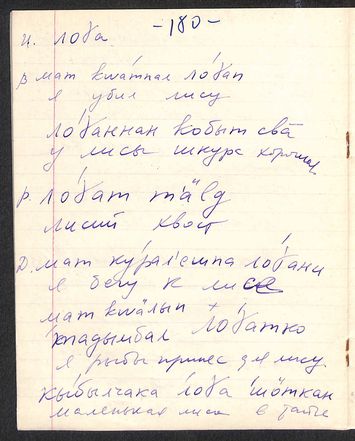 -180-
И. лоҕа
В мат кwатпал ло́ҕап
я убил лису
ло́ҕаннан кобыт свā
у лисы шкура хорошая
Р. ло́ҕат т'ālд
лисий хвост
Д. мат ку́рал'ешпа ло́ҕани
я бегу к лисе
мат кwалып
тадымбал ло́ҕатко
я рыбы принес для лису
кы́былчака ло́ҕа шöткан
маленькая лиса в тайге